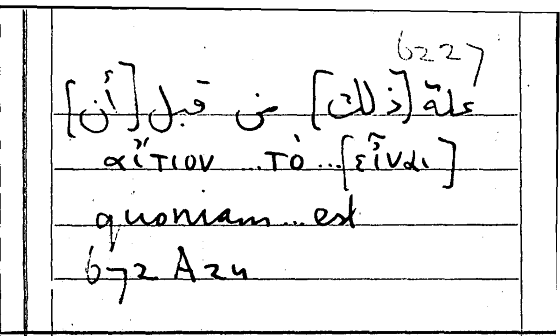 6227
علة [ذلك] من قبل [أن]
αἴτιον ... τὸ ... [εἶναι]
quoniam ... est
672 A 24